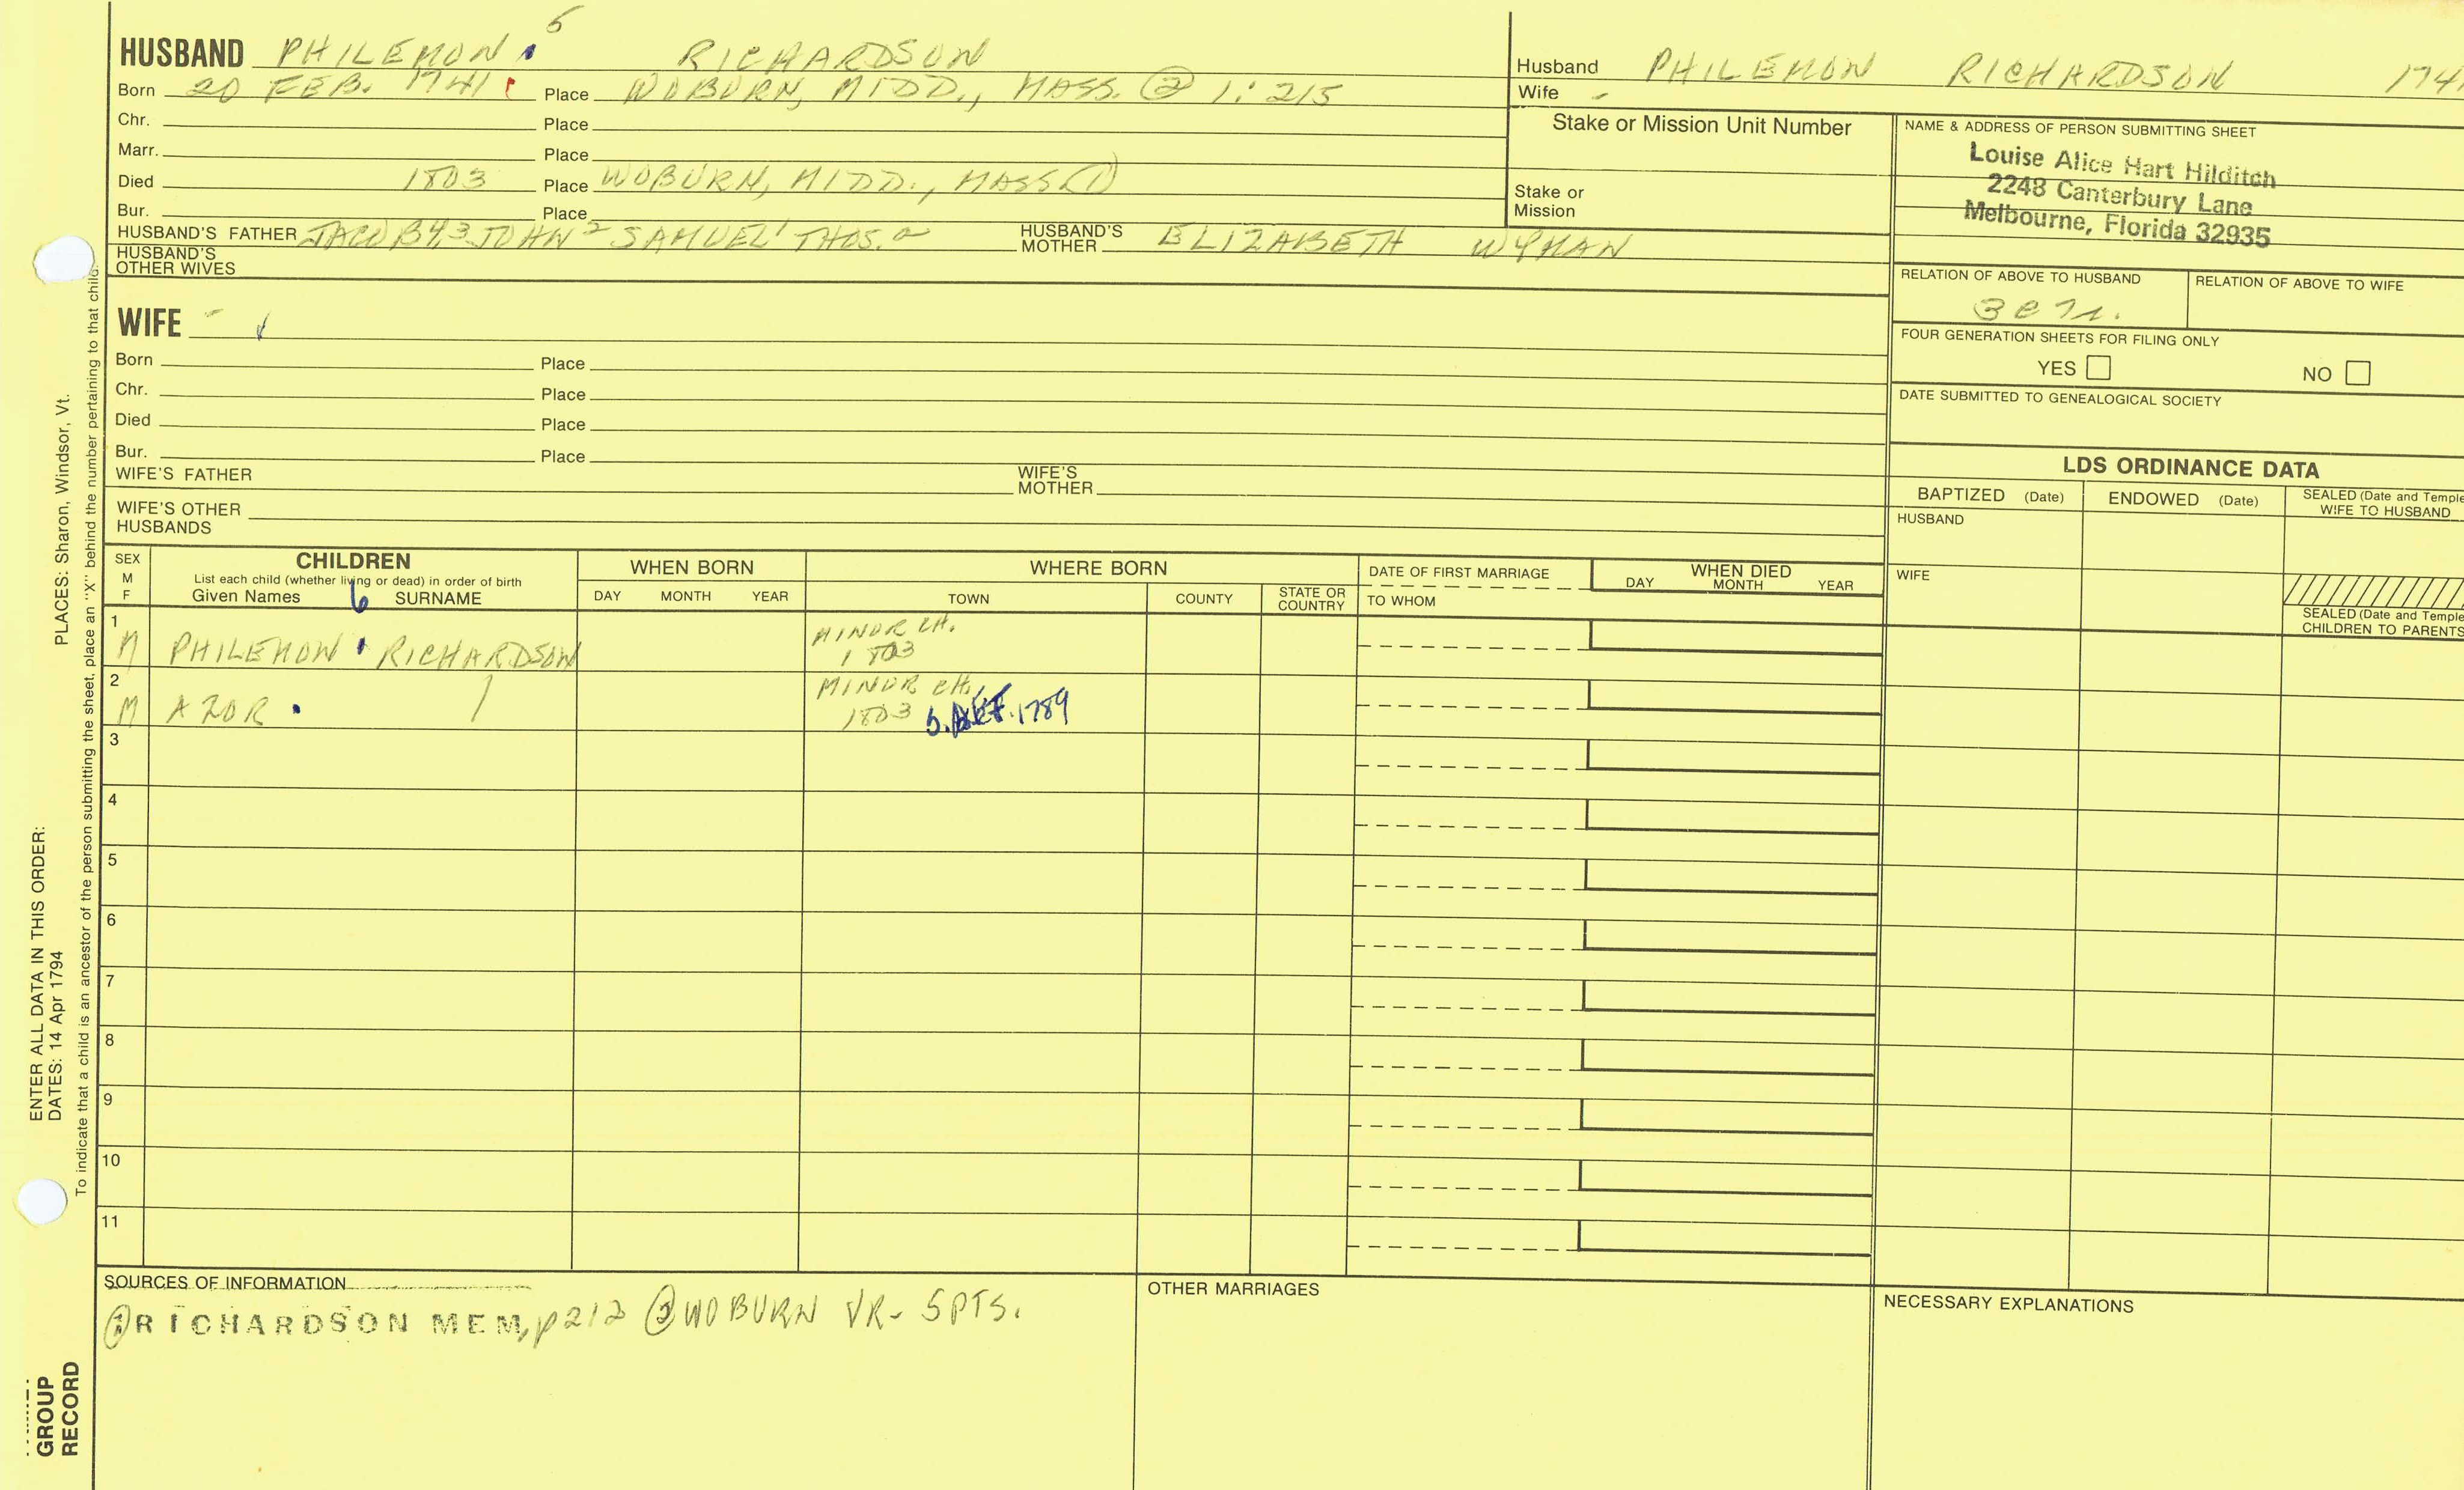 HUSBAND PHILEMON 5 RICHARDSON
Born 20 FEB. 1741 Place WOBURN, MIDD., MASS. ② 1:215
Chr. Place
Marr. Place
Died 1803 Place WOBURN, MIDD., MASS ①
Bur. Place
HUSBAND'S FATHER JACOB 4, 3 JOHN 2 SAMUEL 1 THOS. a HUSBAND'S MOTHER ELIZABETH WYMAN
HUSBAND'S OTHER WIVES
WIFE -
Born Place
Chr. Place
Died Place
Bur. Place
WIFE'S FATHER WIFE'S MOTHER
WIFE'S OTHER HUSBANDS
Husband PHILEMON RICHARDSON 174
Wife -
Stake or Mission Unit Number
Stake or Mission
NAME & ADDRESS OF PERSON SUBMITTING SHEET
Louise Alice Hart Hilditch
2248 Canterbury Lane
Melbourne, Florida 32935
RELATION OF ABOVE TO HUSBAND RELATION OF ABOVE TO WIFE
FOUR GENERATION SHEETS FOR FILING ONLY
YES NO
DATE SUBMITTED TO GENEALOGICAL SOCIETY
LDS ORDINANCE DATA
BAPTIZED (Date) ENDOWED (Date) SEALED (Date and Temple
WIFE TO HUSBAND
HUSBAND
WIFE
SEALED (Date and Temple
CHILDREN TO PARENTS
SEX M F CHILDREN WHEN BORN WHERE BORN DATE OF FIRST MARRIAGE WHEN DIED
List each child (whether living or dead) in order of birth
Given Names 6 SURNAME DAY MONTH YEAR TOWN COUNTY STATE OR COUNTRY TO WHOM DAY MONTH YEAR
1 M PHILEMON RICHARDSON MINOR CH.
1803
2 M AZOR MINOR CH.
1803 b. 1789
3
4
5
6
7
8
9
10
11
SOURCES OF INFORMATION
① RICHARDSON MEM, p212 ② WOBURN VR- 5PTS.
OTHER MARRIAGES
NECESSARY EXPLANATIONS
PLACES: Sharon, Windsor, Vt.
To indicate that a child is an ancestor of the person submitting the sheet, place an "X" behind the number pertaining to that child.
ENTER ALL DATA IN THIS ORDER:
DATES: 14 Apr 1794
GROUP
RECORD